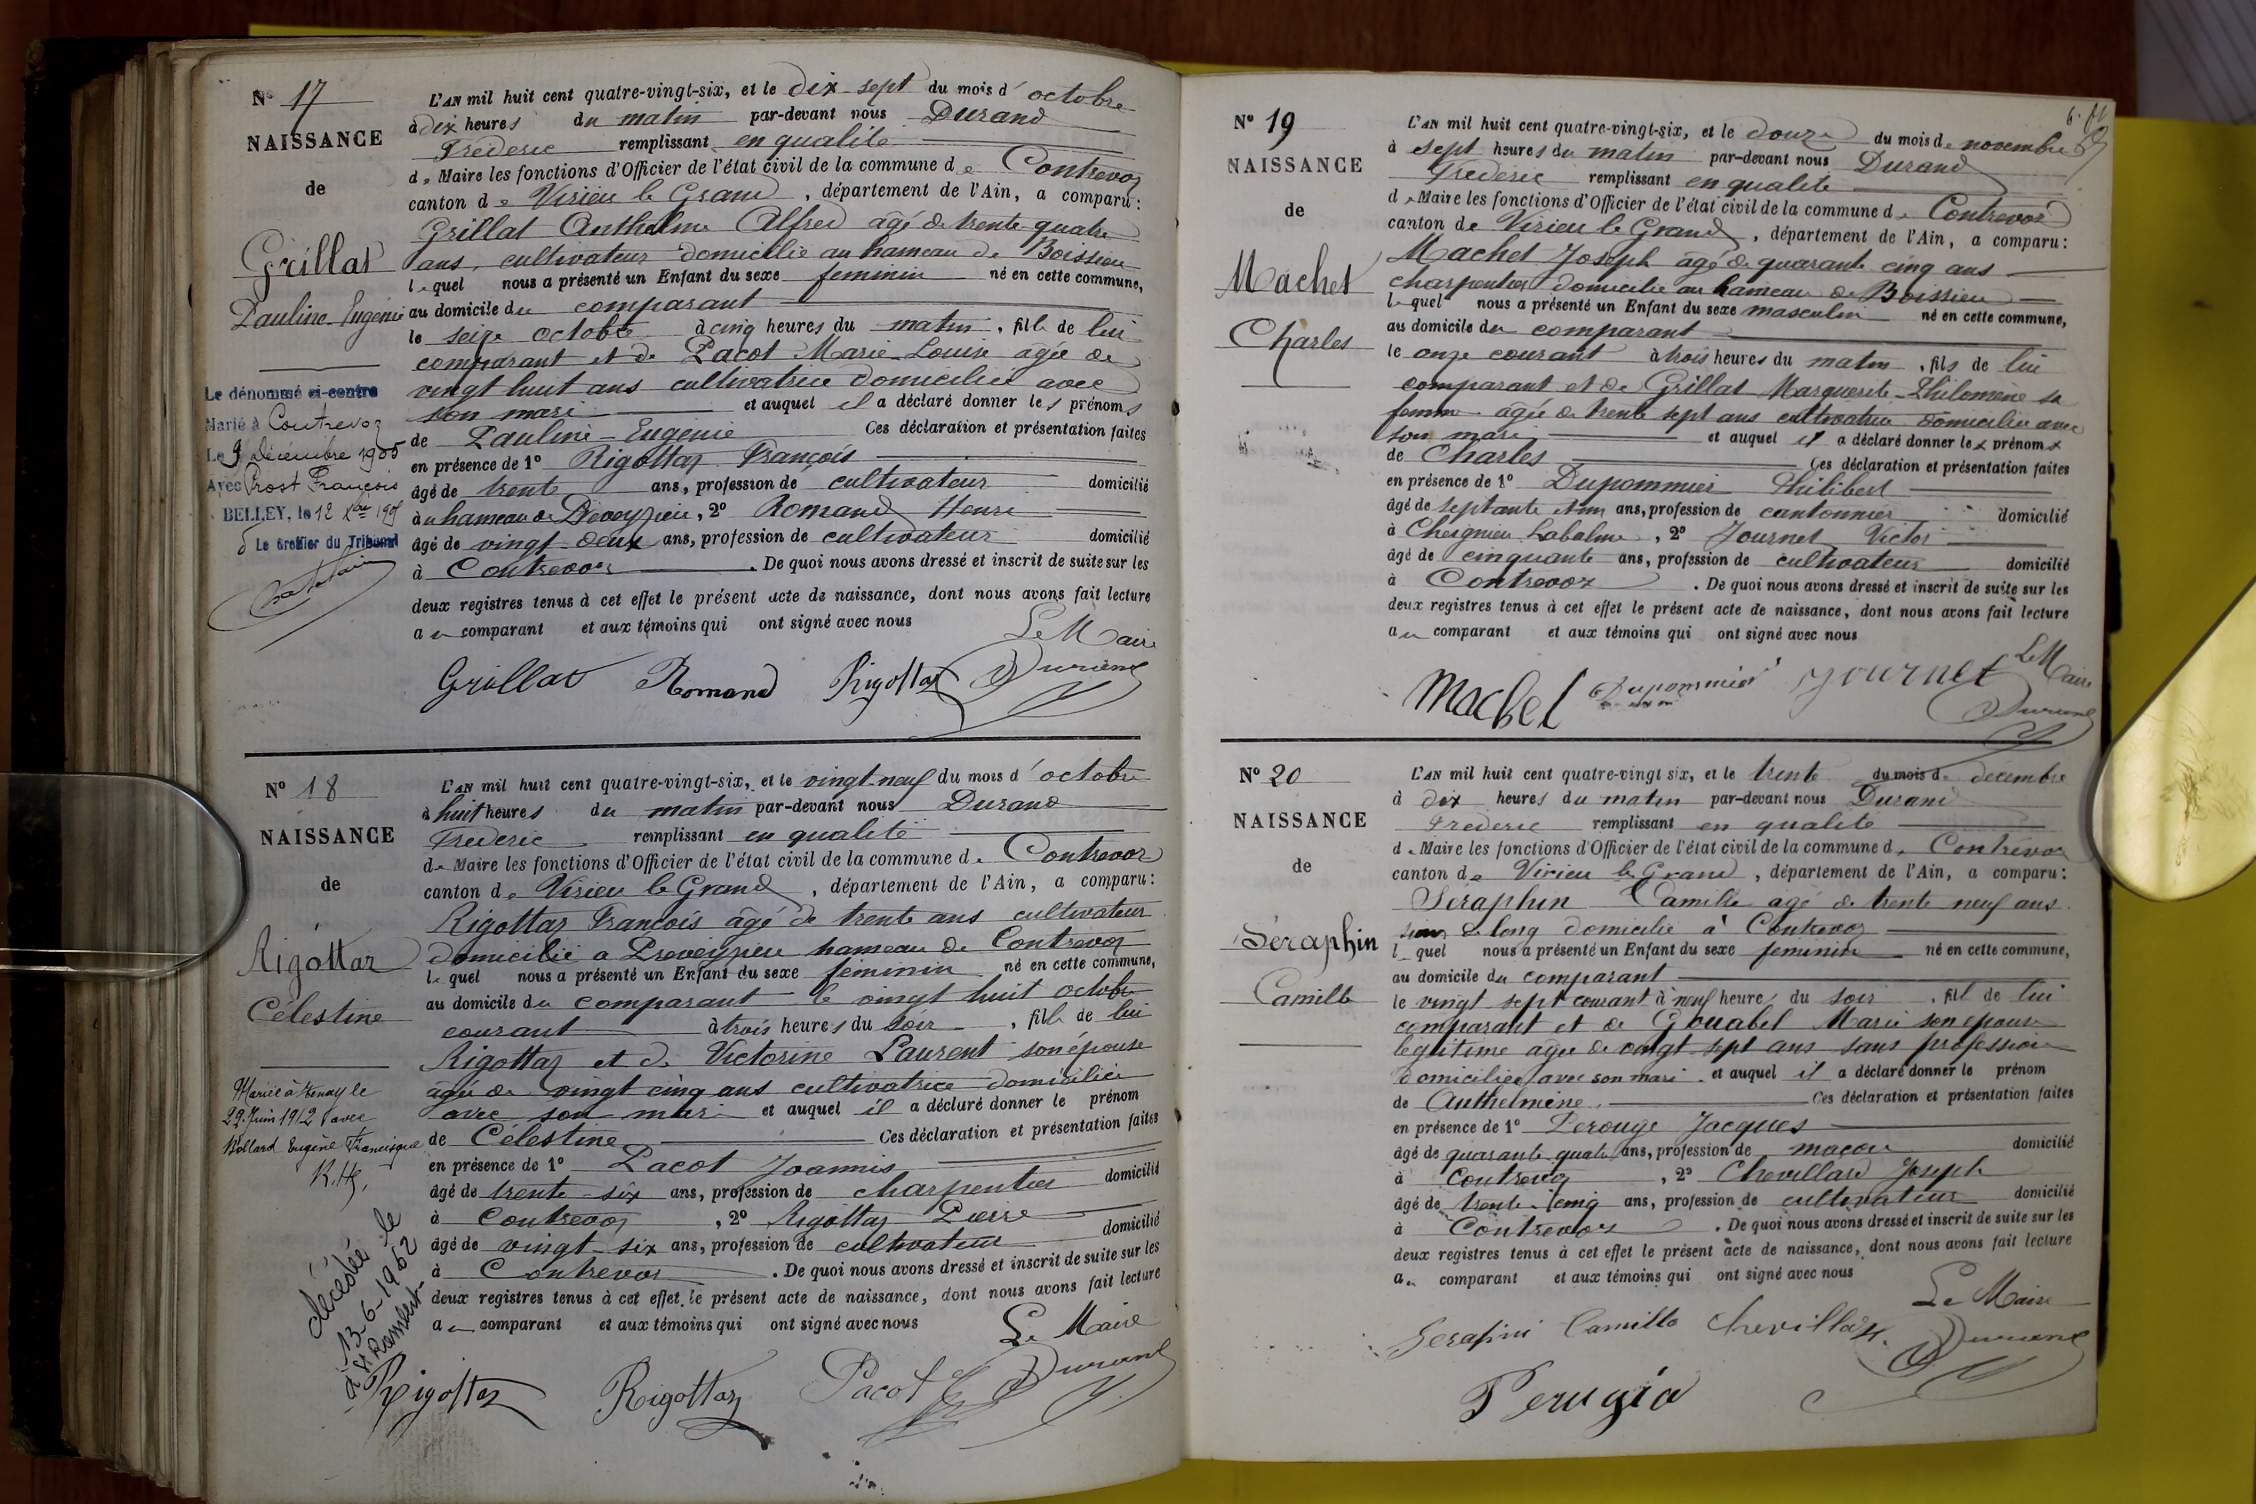 N° 17
NAISSANCE
de
Grillat
Pauline-Eugénie
Le dénommé ci-contre
Marié à Contrevoz
Le 9 décembre 1905
Avec Prost François
BELLEY, le 12 Xbre 1905
Le Greffier du Tribunal
L'AN mil huit cent quatre-vingt-six, et le dix-sept du mois d'octobre
à dix heures du matin par-devant nous Durand
Frederic remplissant en qualité
de Maire les fonctions d'Officier de l'état civil de la commune de Contrevoz
canton de Virieu le Grand, département de l'Ain, a comparu:
Grillat Anthelme Alfred agé de trente quatre
ans, cultivateur domicilié au hameau de Boissieu
lequel nous a présenté un Enfant du sexe feminin né en cette commune,
au domicile du comparant
le seize octobre à cinq heures du matin, fille de lui
comparant et de Pacot Marie-Louise agée de
vingt huit ans cultivatrice domiciliée avec
son mari et auquel il a déclaré donner les prénoms
de Pauline-Eugénie Ces déclaration et présentation faites
en présence de 1° Rigottaz François
âgé de trente ans, profession de cultivateur domicilié
au hameau de Preveyzieu, 2° Romand Henri
âgé de vingt-deux ans, profession de cultivateur domicilié
à Contrevoz. De quoi nous avons dressé et inscrit de suite sur les
deux registres tenus à cet effet le présent acte de naissance, dont nous avons fait lecture
au comparant et aux témoins qui ont signé avec nous
Le Maire
Grillat Romand Rigottaz Durand
N° 18
NAISSANCE
de
Rigottaz
Célestine
Mariée à Tenay le
29 Juin 1912 avec
Bollard Eugène Francisque
décédée le
13-6-1962
à St Rambert
L'AN mil huit cent quatre-vingt-six, et le vingt-neuf du mois d'octobre
à huit heures du matin par-devant nous Durand
Frederic remplissant en qualité
de Maire les fonctions d'Officier de l'état civil de la commune de Contrevoz
canton de Virieu le Grand, département de l'Ain, a comparu:
Rigottaz François âgé de trente ans cultivateur
domicilié a Preveyzieu hameau de Contrevoz
lequel nous a présenté un Enfant du sexe feminin né en cette commune,
au domicile du comparant le vingt huit octobre
courant à trois heures du soir, fille de lui
Rigottaz et de Victorine Laurent son épouse
agée de vingt cinq ans cultivatrice domiciliée
avec son mari et auquel il a déclaré donner le prénom
de Célestine Ces déclaration et présentation faites
en présence de 1° Pacot Joannis
âgé de trente-six ans, profession de charpentier domicilié
à Contrevoz, 2° Rigottaz Pierre
âgé de vingt-six ans, profession de cultivateur domicilié
à Contrevoz. De quoi nous avons dressé et inscrit de suite sur les
deux registres tenus à cet effet, le présent acte de naissance, dont nous avons fait lecture
au comparant et aux témoins qui ont signé avec nous
Le Maire
Rigottaz Rigottaz Pacot Durand
N° 19
NAISSANCE
de
Machet
Charles
L'AN mil huit cent quatre-vingt-six, et le douze du mois de novembre
à sept heures du matin par-devant nous Durand
Frederic remplissant en qualité
de Maire les fonctions d'Officier de l'état civil de la commune de Contrevoz
canton de Virieu le Grand, département de l'Ain, a comparu:
Machet Joseph agé de quarante cinq ans
charpentier domicilié au hameau de Boissieu
lequel nous a présenté un Enfant du sexe masculin né en cette commune,
au domicile du comparant
le onze courant à trois heures du matin, fils de lui
comparant et de Grillat Marguerite-Philomène sa
femme agée de trente sept ans cultivatrice domiciliée avec
son mari et auquel il a déclaré donner le prénom
de Charles Ces déclaration et présentation faites
en présence de 1° Dupommier Philibert
âgé de septante et un ans, profession de cantonnier domicilié
à Cheignieu Labalme, 2° Journet Victor
âgé de cinquante ans, profession de cultivateur domicilié
à Contrevoz. De quoi nous avons dressé et inscrit de suite sur les
deux registres tenus à cet effet le présent acte de naissance, dont nous avons fait lecture
au comparant et aux témoins qui ont signé avec nous
Le Maire
Machet Dupommier Journet Durand
N° 20
NAISSANCE
de
Séraphin
Camille
L'AN mil huit cent quatre-vingt six, et le trente du mois de decembre
à dix heures du matin par-devant nous Durand
Frederic remplissant en qualité
de Maire les fonctions d'Officier de l'état civil de la commune de Contrevoz
canton de Virieu le Grand, département de l'Ain, a comparu:
Séraphin Camille agé de trente neuf ans
de long domicilié à Contrevoz
lequel nous a présenté un Enfant du sexe feminin né en cette commune,
au domicile du comparant
le vingt sept courant à neuf heures du soir, fille de lui
comparant et de Gouabel Marie son épouse
legitime agée de vingt-sept ans sans profession
domiciliée avec son mari et auquel il a déclaré donner le prénom
de Anthelmène. Ces déclaration et présentation faites
en présence de 1° Perouge Jacques
âgé de quarante quatre ans, profession de maçon domicilié
à Contrevoz, 2° Chevillard Joseph
âgé de trente-cinq ans, profession de cultivateur domicilié
à Contrevoz. De quoi nous avons dressé et inscrit de suite sur les
deux registres tenus à cet effet le présent acte de naissance, dont nous avons fait lecture
au comparant et aux témoins qui ont signé avec nous
Le Maire
Serafini Camillo Chevillard Durand
Perugia